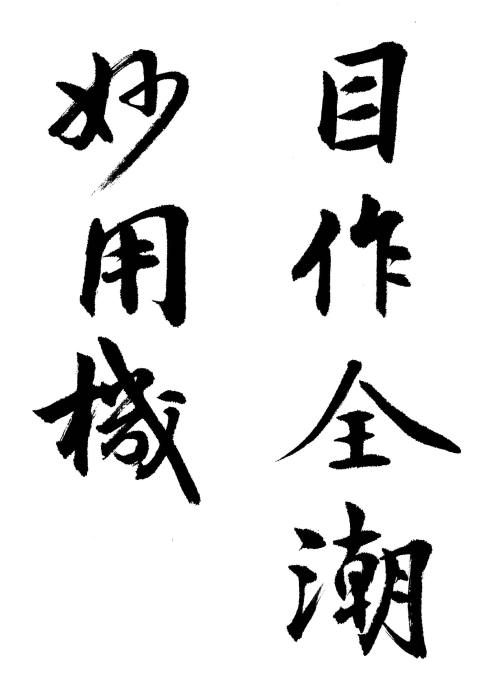 目作全潮
妙用機